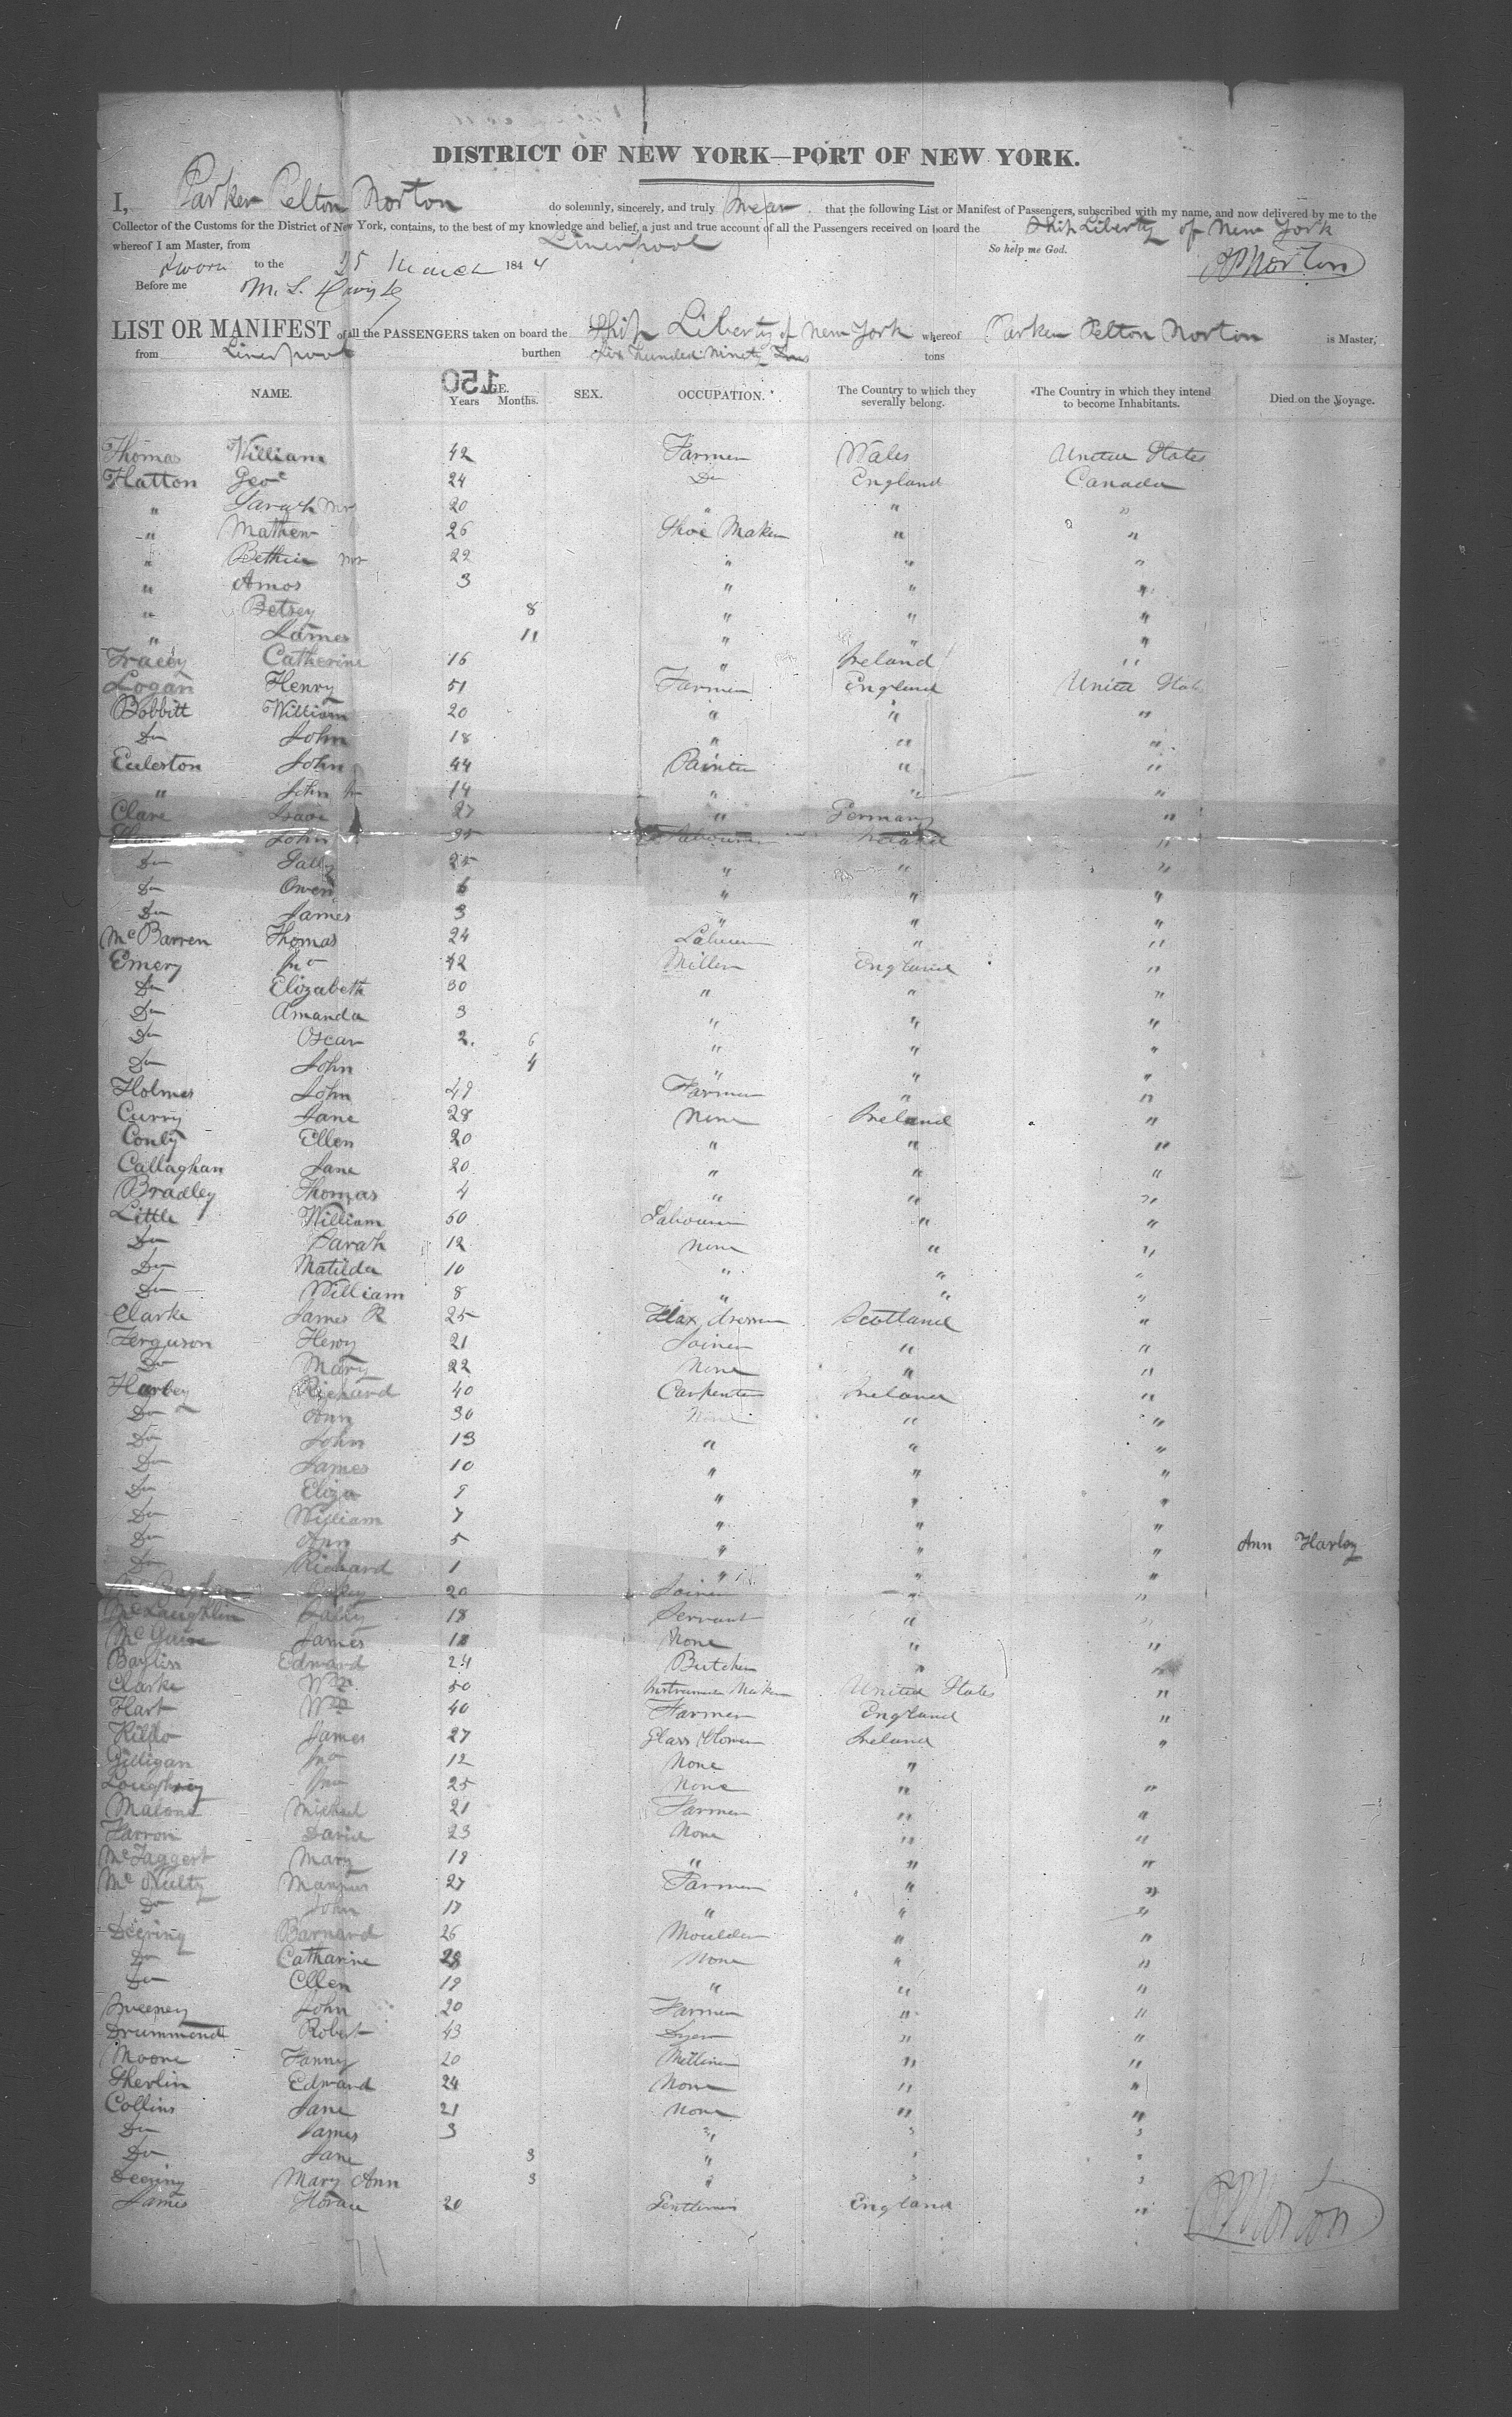 DISTRICT OF NEW YORK—PORT OF NEW YORK.
I, Parker Pelton Norton do solemnly, sincerely, and truly Swear that the following List or Manifest of Passengers, subscribed with my name, and now delivered by me to the
Collector of the Customs for the District of New York, contains, to the best of my knowledge and belief, a just and true account of all the Passengers received on board the Ship Liberty of New York
whereof I am Master, from Liverpool So help me God.
Sworn to the 25 March 1844 PPNorton
Before me M. L. Davis
LIST OR MANIFEST of all the PASSENGERS taken on board the Ship Liberty of New York whereof Parker Pelton Norton is Master,
from Liverpool burthen Six Hundred Ninety tons
150
NAME. AGE. Years Months. SEX. OCCUPATION. The Country to which they severally belong. *The Country in which they intend to become Inhabitants. Died on the Voyage.
Thomas William 42 Farmer Wales United States
Hatton Geo 24 Do England Canada
" Sarah Mrs 20 " " "
" Mathew 26 Shoe Maker " "
" 22 " " "
" Amos 3 " " "
" Betsey 8 " " "
" James 11 " " "
Tracey Catherine 16 " Ireland "
Logan Henry 51 Farmer England United States
Bobbitt William 20 " " "
Do John 18 " " "
Euleston John 44 Painter " "
" John Jr 14 " " "
Clare Isaac 27 " Germany "
John 35 Labourer Ireland "
Do Sally 25 " " "
Do Owen 6 " " "
Do James 3 " " "
McBarren Thomas 24 Labourer " "
Emery Jno 42 Miller England "
Do Elizabeth 30 " " "
Do Amanda 3 " " "
Do Oscar 2 6 " " "
Do John 4 " " "
Holmes John 49 Farmer " "
Curry Jane 28 None Ireland "
Conly Ellen 20 " " "
Callaghan Jane 20 " " "
Bradley Thomas 4 " " "
Little William 50 Labourer " "
Do Sarah 12 None " "
Do Matilda 10 " " "
Do William 8 " " "
Clarke James R 25 Flax dresser Scotland "
Ferguson Henry 21 Joiner " "
Do Mary 22 None " "
Harley Richard 40 Carpenter Ireland "
Do Ann 30 None " "
Do John 13 " " "
Do James 10 " " "
Do Eliza 9 " " "
Do William 7 " " "
Do Ann 5 " " " Ann Harley
Do Richard 1 " " "
20 Joiner " "
McLaughlin Sally 18 Servant " "
McGuire James 18 None " "
Bayliss Edward 24 Butcher " "
Clarke Wm 50 Instrument Maker United States "
Hart Wm 40 Farmer England "
James 27 Glass Blower Ireland "
Gilligan Jno 12 None "
Loughrey Jno 25 None " "
Malone Michael 21 Farmer " "
Harron David 23 None " "
McTaggert Mary 19 " " "
McNulty Manus 27 Farmer " "
Do John 17 " " "
Deering Barnard 26 Moulder " "
Do Catharine 28 None " "
Do Ellen 19 " " "
Sweeney John 20 Farmer " "
Drummond Robert 43 Dyer " "
Moore Fanny 20 Milliner " "
Sherlin Edward 24 None " "
Collins Jane 21 None " "
Do James 3 " " "
Do Jane 3 " " "
Deering Mary Ann 3 " " "
James Horace 20 Gentleman England "
PPNorton
71